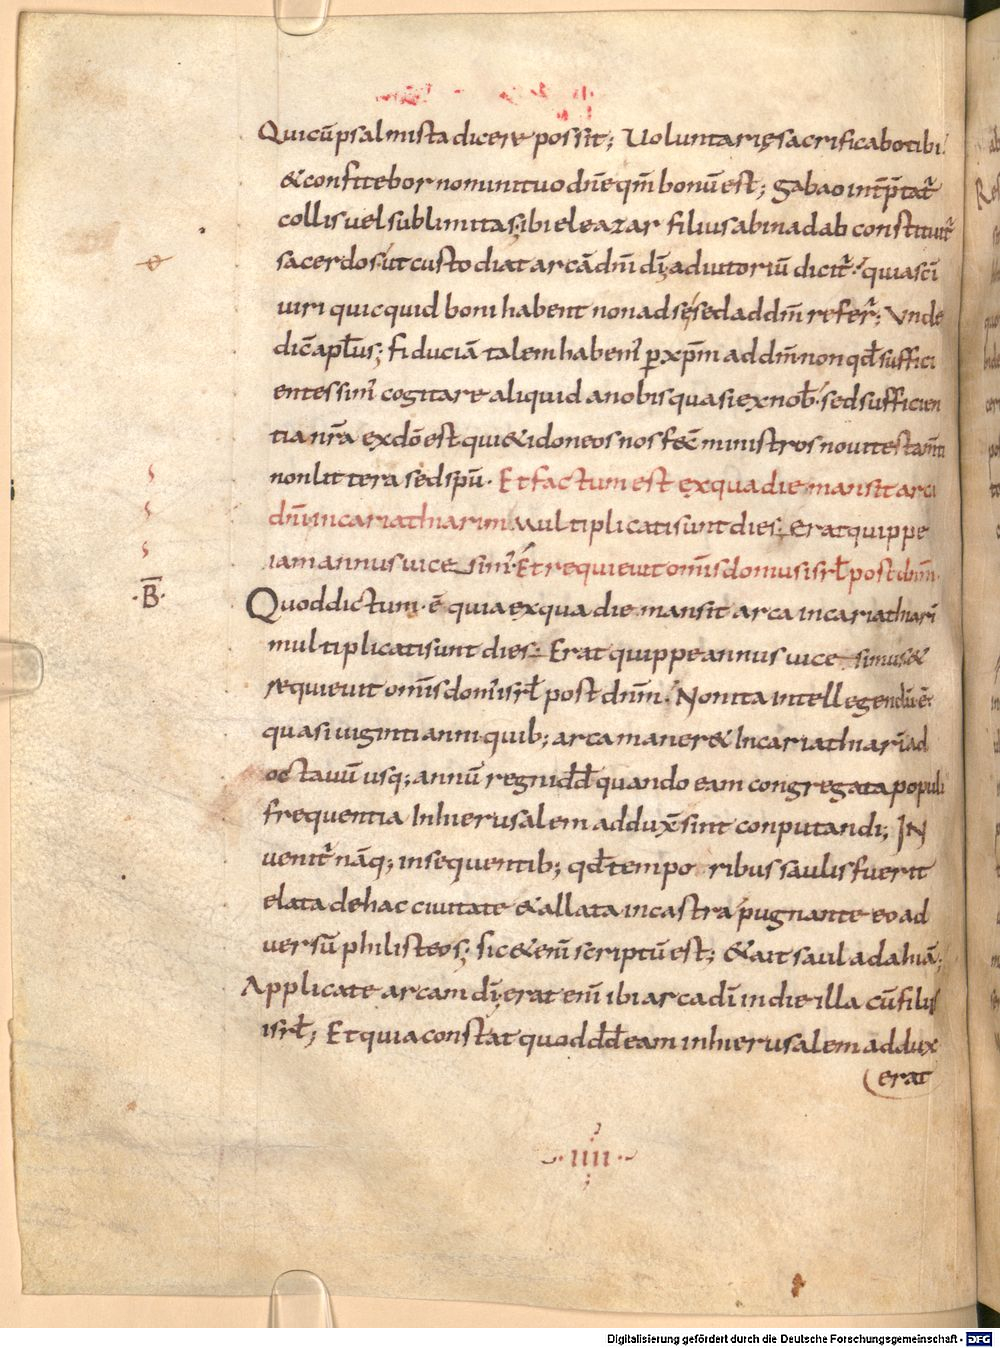 Quicūpsalmista dicere possit; Uoluntarię sacrificabo tibi
&confitebor nominituo dn̄e qm̄ bonū est; Gabao int̄p̄tat̄
collis uel sublimitas; ibi eleazar filius abinadab constituit̄
sacerdos; ut custodiat arcā dn̄i dī; adiutoriū dicit̄; quia sc̄i
uiri quicquid boni habent non ad sę; sed ad dn̄m refer̄; Vnde
dic̄ apl̄us; fiduciā talem habem' p xp̄m ad dn̄m. non qd̄ suffici
entes sim' cogitare aliquid a nobis quasi ex nob̄. sed sufficien
tia nr̄a ex dō est qui & idoneos nos fec̄ ministros noui testam̄ti
non littera sed sp̄u. Et factum est exqua die mansit arca
dn̄i incariathiarim Multiplicati sunt dies; Erat quippe
iam annus uicesim'. Et requieuit om̄is domus isrl̄ post dn̄m.
·B̄·
Quod dictum. ē quia exqua die mansit arca incariathiarī
multiplicati sunt dies; Erat quippe annus uicesimus &
requieuit om̄is dom' isrl̄ post dn̄m. Non ita intellegendū ē.
quasi uiginti anni quib; arca maner& In cariathiarī ad
octauū usq; annū regni dd̄ quando eam congregata populi
frequentia In hierusalem addux̄ sint conputandi; IN
uenit̄ nāq; insequentib; qd̄ temporibus saulis fuerit
elata de hac ciuitate & allata in castra pugnante eo ad
uersū philisteos; sic & enī scriptū est; & ait saul ad ahiā;
Applicate arcam dī; erat enī ibi arca dī in die illa cū filiis
isrl̄; Et quia constat quod dd̄ eam in hierusalem addux
erat
·IIII·
Digitalisierung gefördert durch die Deutsche Forschungsgemeinschaft - DFG